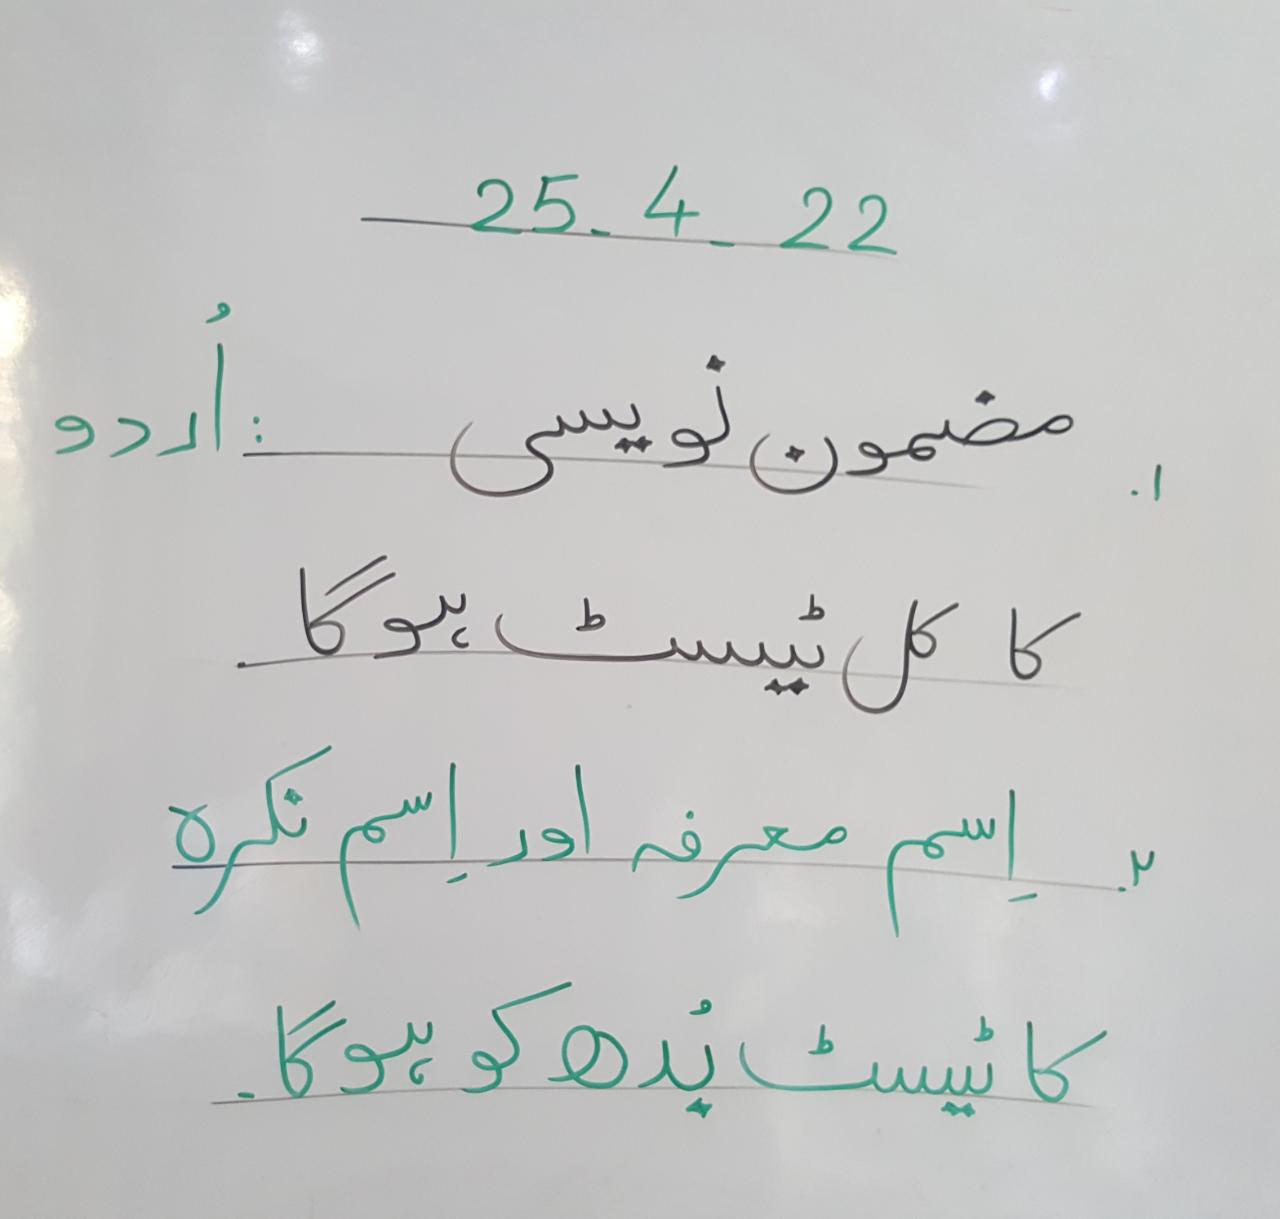 25-4-22
اُردو:
۱. مضمون نویسی
کا کل ٹیسٹ ہوگا
۲. اِسم معرفہ اور اِسم نکرہ
کا ٹیسٹ بُدھ کو ہوگا۔